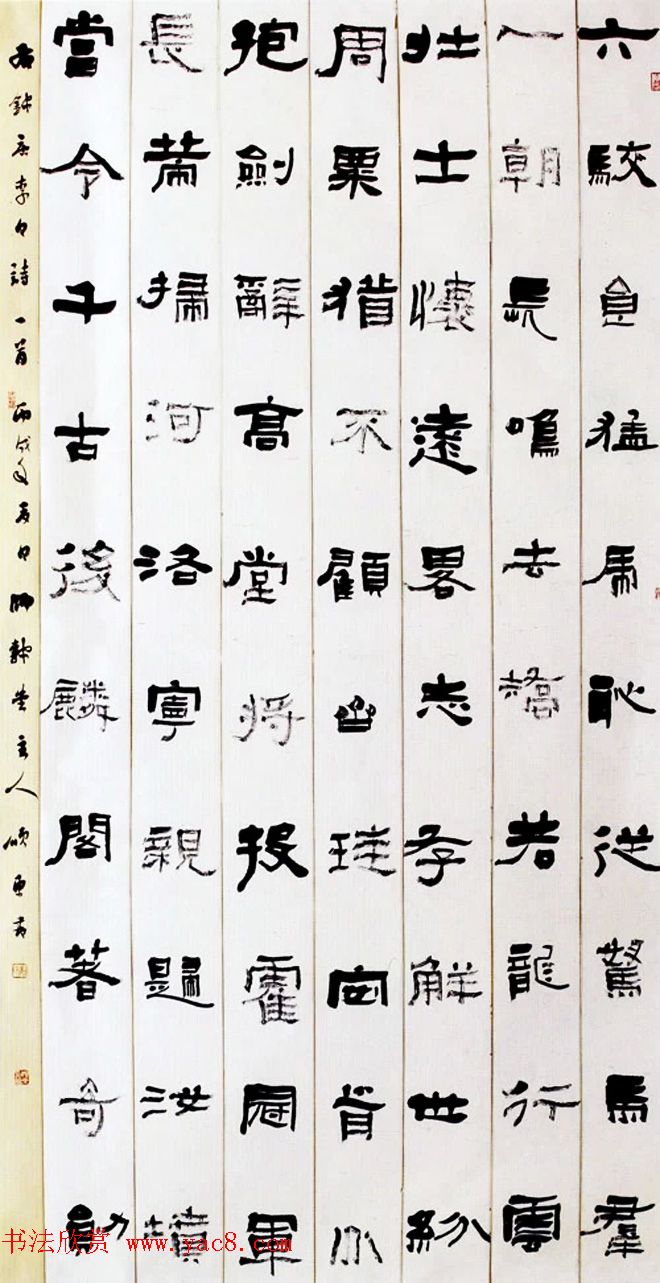 六駮食猛虎恥從駑馬羣
一朝長鳴去矯若龍行雲
壯士懷遠畧志存解世紛
周粟猶不顧齊珪安肯分
抱劍辭高堂將投霍冠軍
長策掃河洛寧親歸汝墳
當令千古後麟閣著奇勛
右錄唐李白詩一首 丙戌年夏日 堂主人
书法欣赏 www.yac8.com